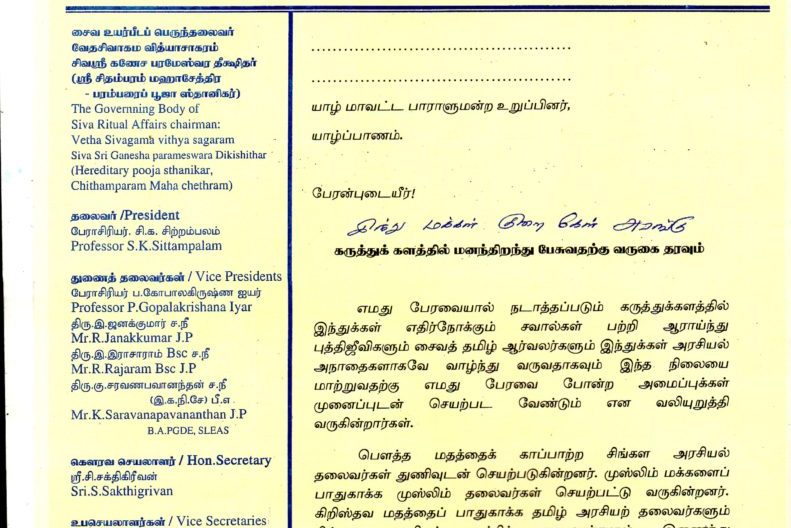 சைவ உயர்பீடப் பெருந்தலைவர்
வேதசிவாகம வித்யாசாகரம்
சிவஸ்ரீ கணேச பரமேஸ்வர தீக்ஷிதர்
(ஸ்ரீ சிதம்பரம் மஹாசேத்திர
- பரம்பரைப் பூஜா ஸ்தானிகர்)
The Governning Body of
Siva Ritual Affairs chairman:
Vetha Sivagama vithya sagaram
Siva Sri Ganesha parameswara Dikishithar
(Hereditary pooja sthanikar,
Chithamparam Maha chethram)
தலைவர் /President
பேராசிரியர். சி.க. சிற்றம்பலம்
Professor S.K.Sittampalam
துணைத் தலைவர்கள் / Vice Presidents
பேராசிரியர் ப.கோபாலகிருஷ்ண ஐயர்
Professor P.Gopalakrishana Iyar
திரு.இ.ஜனக்குமார் ச.நீ
Mr.R.Janakkumar J.P
திரு.இ.இராசாராம் Bsc ச.நீ
Mr.R.Rajaram Bsc J.P
திரு.கு.சரவணபவானந்தன் ச.நீ
(இ.க.நி.சே) பீ.எ.
Mr.K.Saravanapavananthan J.P
B.A.PGDE, SLEAS
கௌரவ செயலாளர் / Hon.Secretary
ஸ்ரீ.சி.சக்திகிரீவன்
Sri.S.Sakthigrivan
உபசெயலாளர்கள் / Vice Secretaries
............................................
............................................
யாழ் மாவட்ட பாராளுமன்ற உறுப்பினர்,
யாழ்ப்பாணம்.
பேரன்புடையீர்!
இந்து மக்கள் குறை கேள் அரங்கு
கருத்துக் களத்தில் மனந்திறந்து பேசுவதற்கு வருகை தரவும்
எமது பேரவையால் நடாத்தப்படும் கருத்துக்களத்தில்
இந்துக்கள் எதிர்நோக்கும் சவால்கள் பற்றி ஆராய்ந்து
புத்திஜீவிகளும் சைவத் தமிழ் ஆர்வலர்களும் இந்துக்கள் அரசியல்
அநாதைகளாகவே வாழ்ந்து வருவதாகவும் இந்த நிலையை
மாற்றுவதற்கு எமது பேரவை போன்ற அமைப்புக்கள்
முனைப்புடன் செயற்பட வேண்டும் என வலியுறுத்தி
வருகின்றார்கள்.
பௌத்த மதத்தைக் காப்பாற்ற சிங்கள அரசியல்
தலைவர்கள் துணிவுடன் செயற்படுகின்றனர். முஸ்லிம் மக்களைப்
பாதுகாக்க முஸ்லிம் தலைவர்கள் செயற்பட்டு வருகின்றனர்.
கிறிஸ்தவ மதத்தைப் பாதுகாக்க தமிழ் அரசியற் தலைவர்களும்